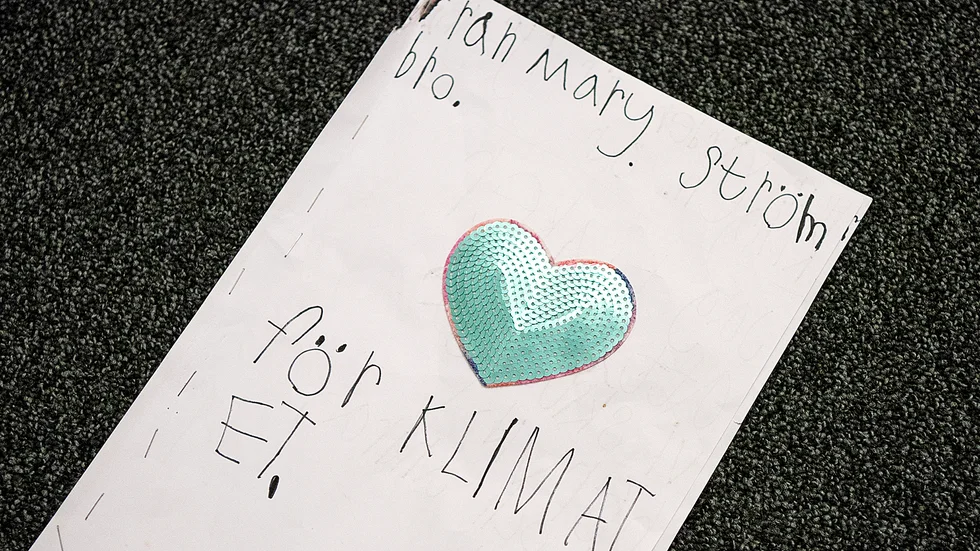 rån Mary. Ström
bro.
för KLIMAT
ET.